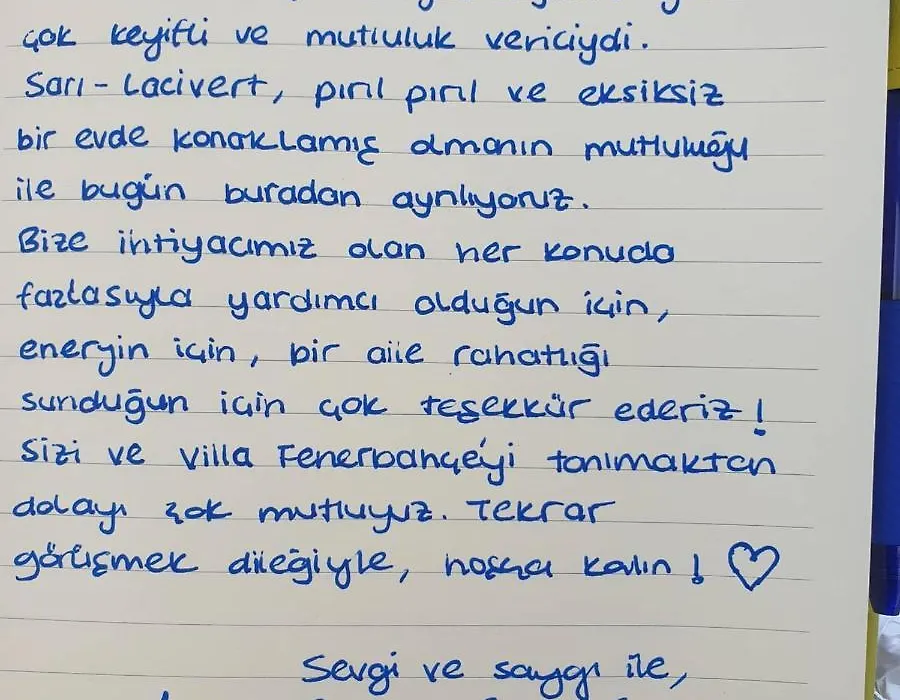 çok keyifli ve mutluluk vericiydi.
Sarı-Lacivert, pırıl pırıl ve eksiksiz
bir evde konaklamış olmanın mutluluğu
ile bugün buradan ayrılıyoruz.
Bize ihtiyacımız olan her konuda
fazlasıyla yardımcı olduğun için,
enerjin için, bir aile rahatlığı
sunduğun için çok teşekkür ederiz!
Sizi ve Villa Fenerbahçe'yi tanımaktan
dolayı çok mutluyuz. Tekrar
görüşmek dileğiyle, hoşça kalın! ♡
Sevgi ve saygı ile,